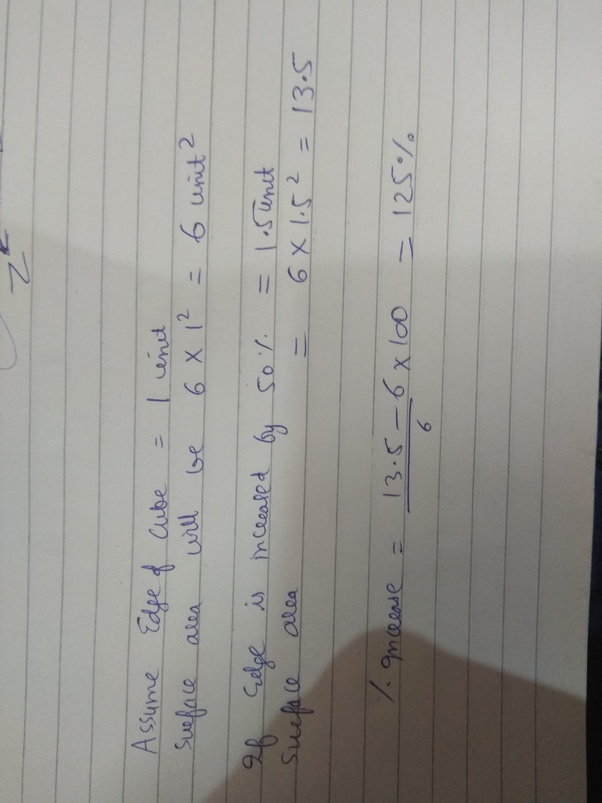 Assume Edge of cube = 1 unit
Surface area will be 6 × 1² = 6 unit²
If Edge is increased by 50% = 1.5 unit
Surface area = 6 × 1.5² = 13.5
% Increase = 13.5 – 6 × 100 = 125%
6